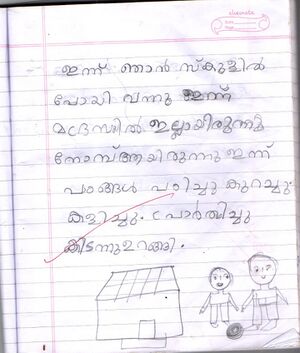 classmate
Date
Page
ഇന്ന് ഞാൻ സ്കൂളിൽ
പോയി വന്നു ഇന്ന്
മദ്രസയിൽ ഇല്ലായിരുന്നു
നോമ്പ്ആയിരുന്നു ഇന്ന്
പാഠങ്ങൾ പഠിച്ചു കുറച്ചു
കളിച്ചു. പ്രാർത്ഥിച്ചു
കിടന്നുഉറങ്ങി.